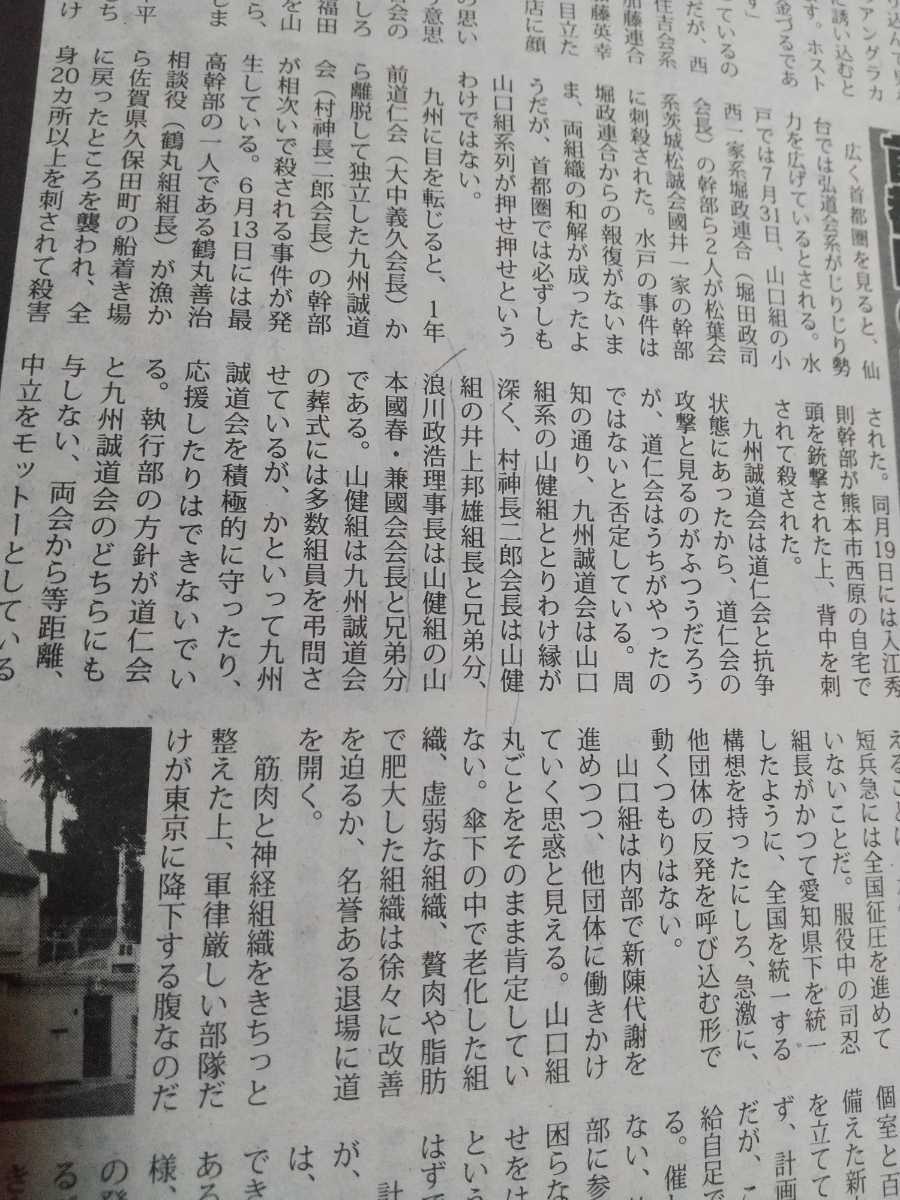 広く首都圏を見ると、仙
台では弘道会系がじりじり勢
力を広げているとされる。水
戸では7月31日、山口組の小
西一家系堀政連合（堀田政司
会長）の幹部ら2人が松葉会
系茨城松誠会國井一家の幹部
に刺殺された。水戸の事件は
堀政連合からの報復がないま
ま、両組織の和解が成ったよ
うだが、首都圏では必ずしも
山口組系列が押せ押せという
わけではない。
九州に目を転じると、1年
前道仁会（大中義久会長）か
ら離脱して独立した九州誠道
会（村神長二郎会長）の幹部
が相次いで殺される事件が発
生している。6月13日には最
高幹部の一人である鶴丸善治
相談役（鶴丸組組長）が漁か
ら佐賀県久保田町の船着き場
に戻ったところを襲われ、全
身20カ所以上を刺されて殺害
された。同月19日には入江秀
則幹部が熊本市西原の自宅で
頭を銃撃された上、背中を刺
されて殺された。
九州誠道会は道仁会と抗争
状態にあったから、道仁会の
攻撃と見るのがふつうだろう
が、道仁会はうちがやったの
ではないと否定している。周
知の通り、九州誠道会は山口
組系の山健組ととりわけ縁が
深く、村神長二郎会長は山健
組の井上邦雄組長と兄弟分、
浪川政浩理事長は山健組の山
本國春・兼國会会長と兄弟分
である。山健組は九州誠道会
の葬式には多数組員を弔問さ
せているが、かといって九州
誠道会を積極的に守ったり、
応援したりはできないでい
る。執行部の方針が道仁会
と九州誠道会のどちらにも
与しない、両会から等距離、
中立をモットーとしている
短兵急には全国征圧を進めて
いないことだ。服役中の司忍
組長がかつて愛知県下を統一
したように、全国を統一する
構想を持ったにしろ、急激に、
他団体の反発を呼び込む形で
動くつもりはない。
山口組は内部で新陳代謝を
進めつつ、他団体に働きかけ
ていく思惑と見える。山口組
丸ごとをそのまま肯定してい
ない。傘下の中で老化した組
織、虚弱な組織、贅肉や脂肪
で肥大した組織は徐々に改善
を迫るか、名誉ある退場に道
を開く。
筋肉と神経組織をきちっと
整えた上、軍律厳しい部隊だ
けが東京に降下する腹なのだ